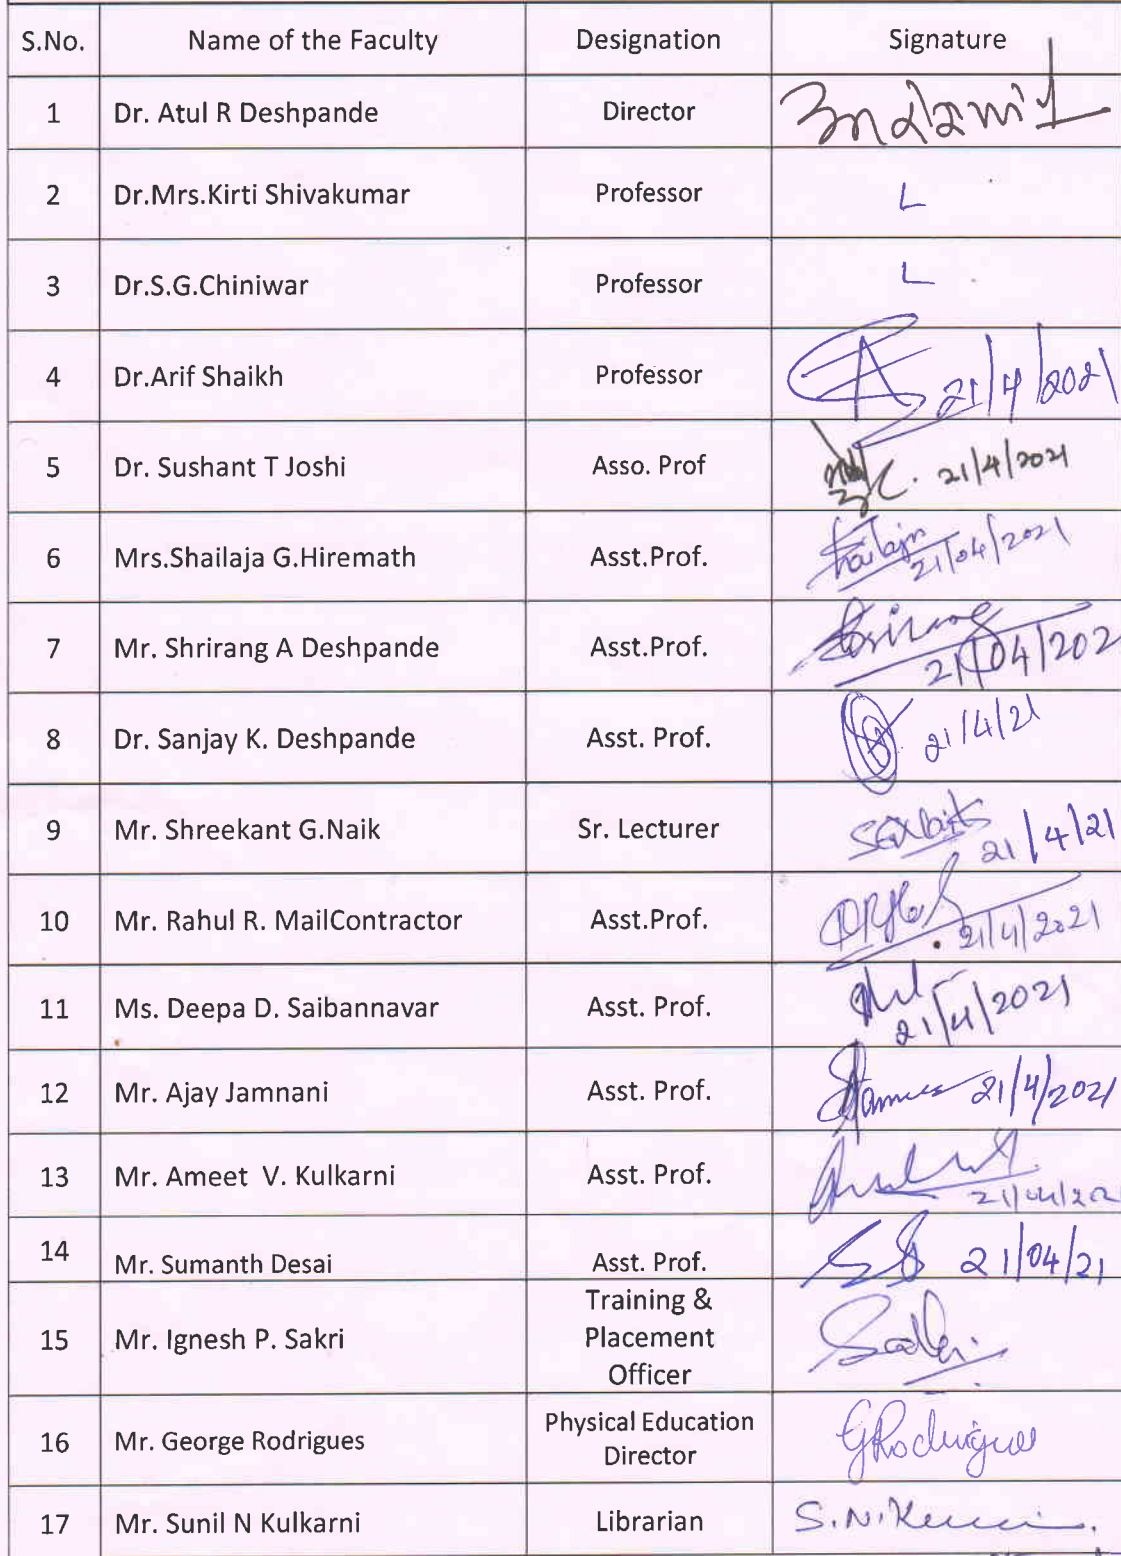 S.No. Name of the Faculty Designation Signature
1 Dr. Atul R Deshpande Director
2 Dr.Mrs.Kirti Shivakumar Professor L
3 Dr.S.G.Chiniwar Professor L
4 Dr.Arif Shaikh Professor 21/4/2021
5 Dr. Sushant T Joshi Asso. Prof 21/4/2021
6 Mrs.Shailaja G.Hiremath Asst.Prof. 21/04/2021
7 Mr. Shrirang A Deshpande Asst.Prof. Shrirang 21/04/202
8 Dr. Sanjay K. Deshpande Asst. Prof. 21/4/21
9 Mr. Shreekant G.Naik Sr. Lecturer 21/4/21
10 Mr. Rahul R. MailContractor Asst.Prof. 21/4/2021
11 Ms. Deepa D. Saibannavar Asst. Prof. 21/4/2021
12 Mr. Ajay Jamnani Asst. Prof. 21/4/2021
13 Mr. Ameet V. Kulkarni Asst. Prof. 21/04/202
14 Mr. Sumanth Desai Asst. Prof. 21/04/21
15 Mr. Ignesh P. Sakri Training &
Placement
Officer
16 Mr. George Rodrigues Physical Education
Director GRodrigues
17 Mr. Sunil N Kulkarni Librarian S.N.